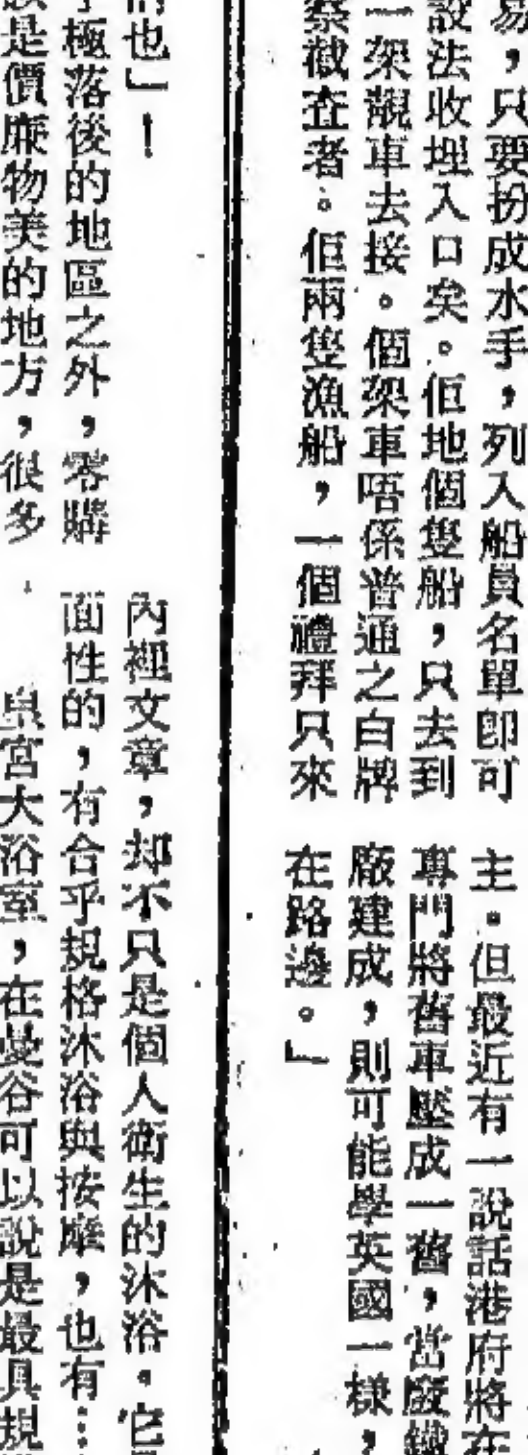 易，只要扮成水手，列入船員名單即可
設法收埋入口矣。佢地個隻船，只去到
一架靚車去接。個架車唔係普通之白牌
察截查者。佢兩隻漁船，一個禮拜只來
主。但最近有一說話港府將在
專門將舊車壓成一舊，當廢鐵
廠建成，則可能學英國一樣，
在路邊。」
也」！
極落後的地區之外，零購
是價廉物美的地方，很多
內裡文章，却不只是個人衞生的沐浴。它
面性的，有合乎規格沐浴與按摩，也有…
皇宮大浴室，在曼谷可以說是最具規